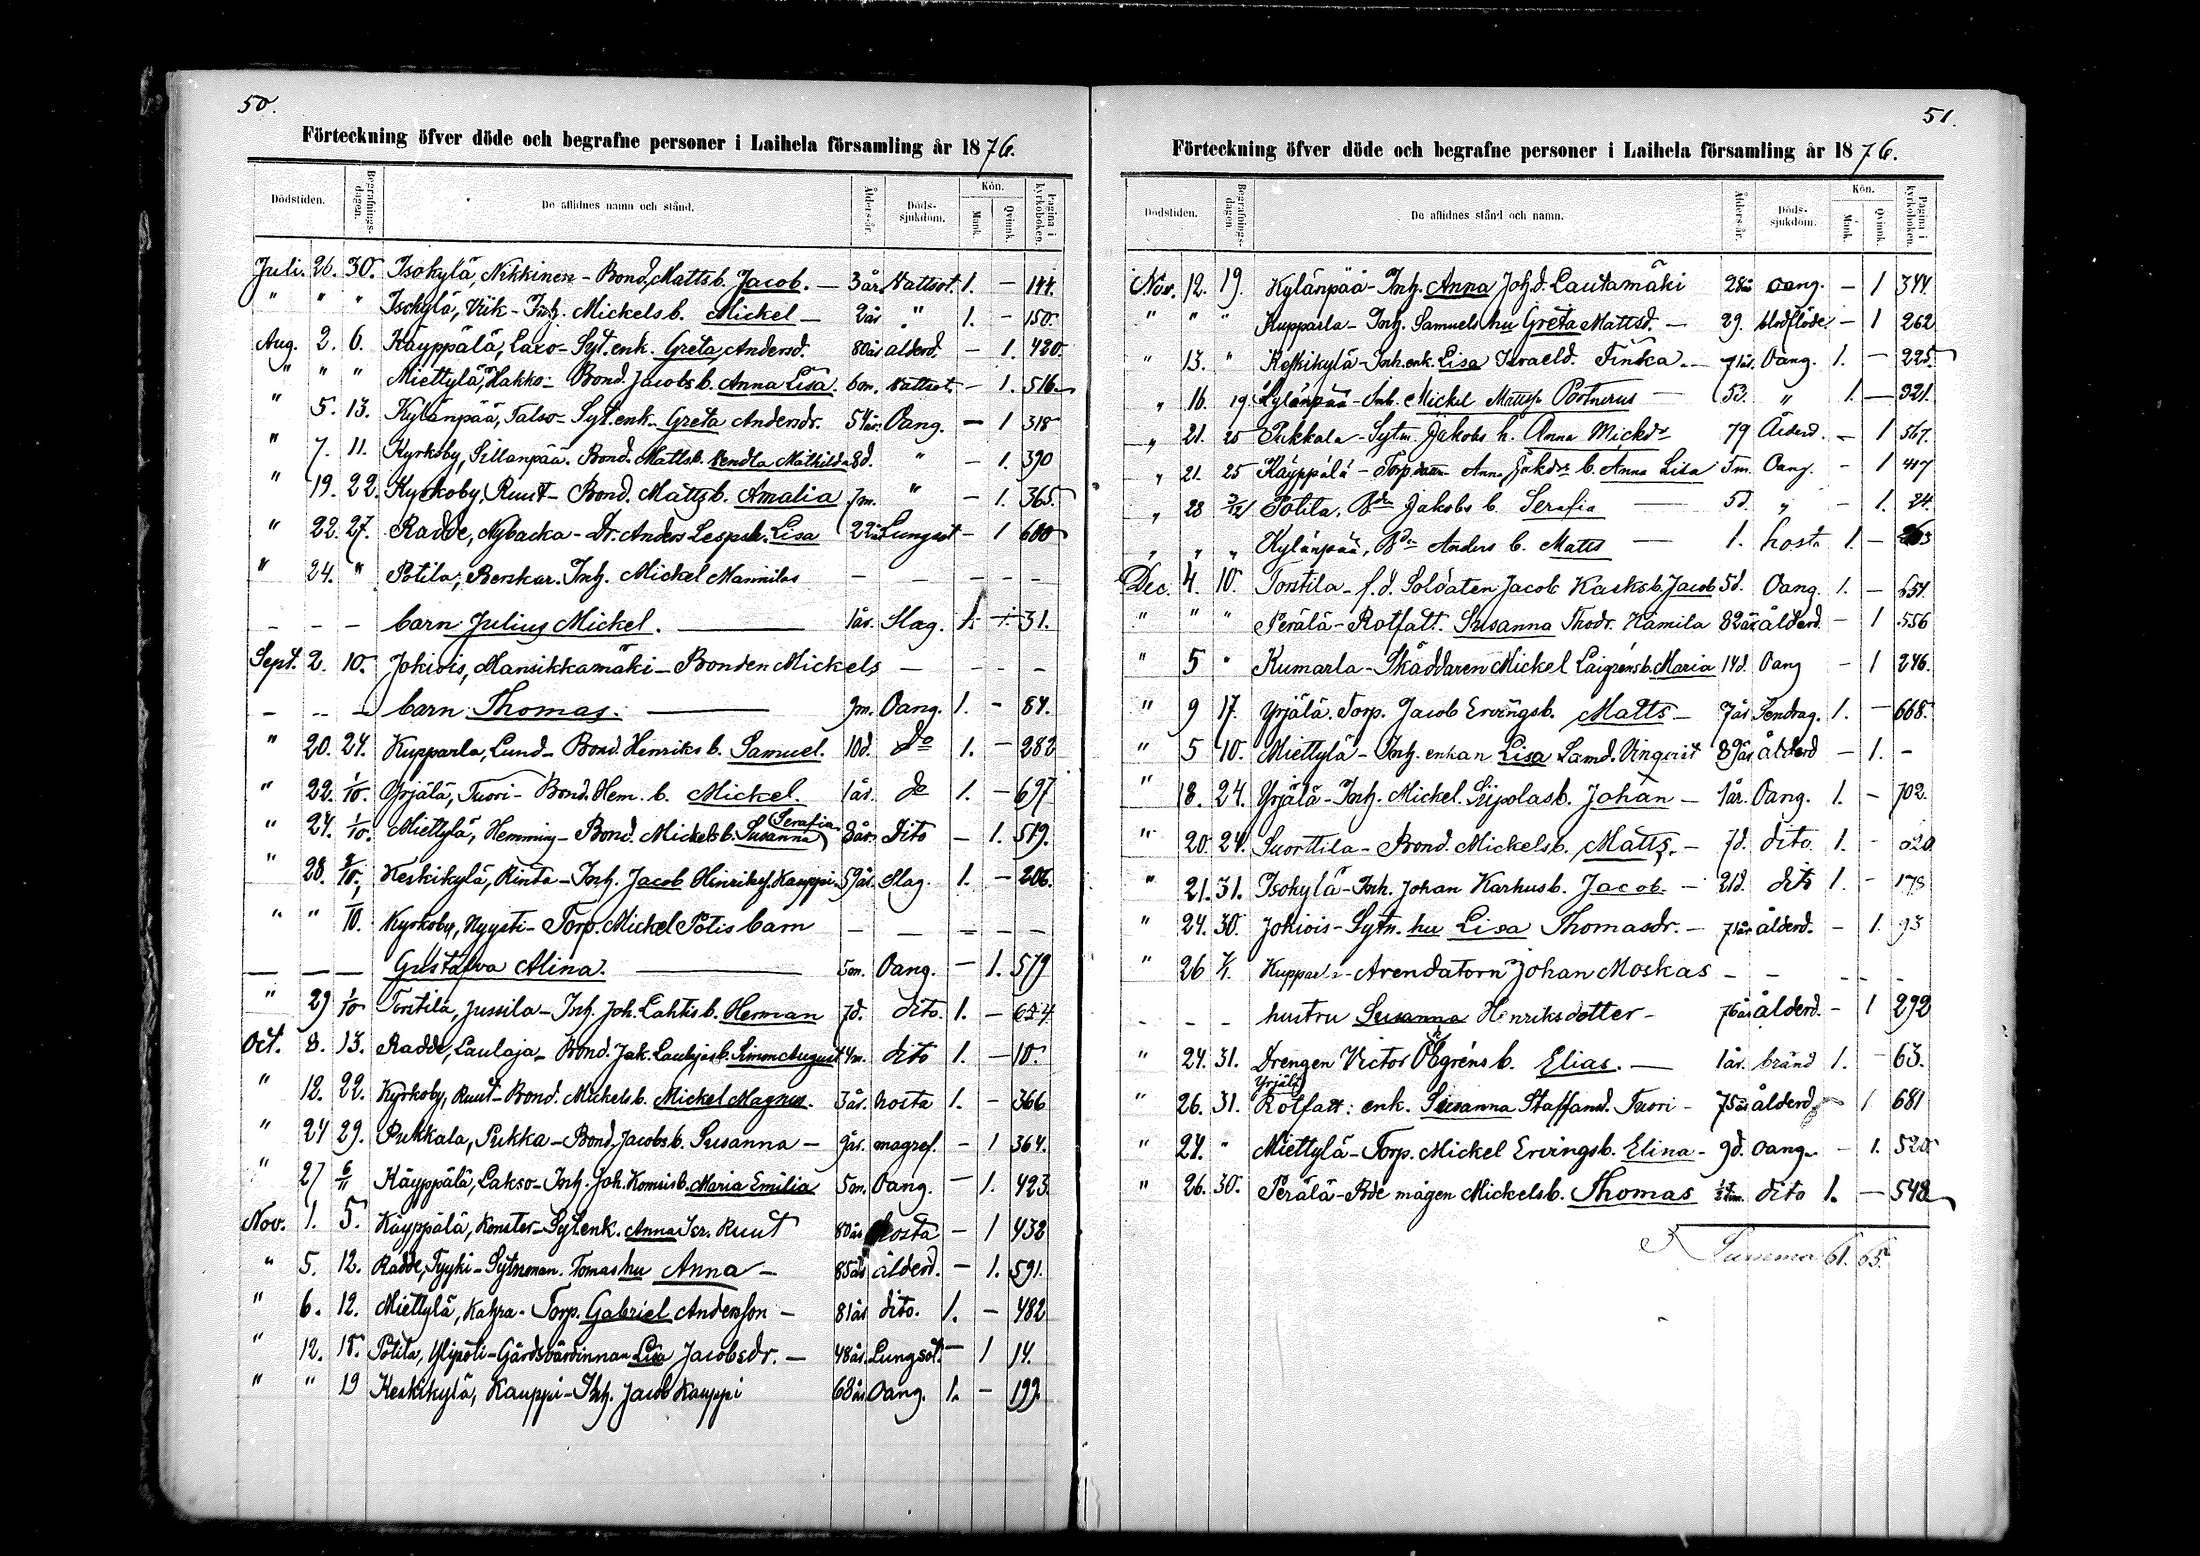 50.
Förteckning öfver döde och begrafne personer i Laihela församling år 1876.
Dödstiden. Begrafnings-dagen. De aflidnes namn och stånd. Ålders-år. Döds-sjukdom. Kön. Mank. Qvinnk. Pagina i kyrkoboken.
Juli. 26. 30. Isokylä, Nikkinen - Bond. Mattsb. Jacob. — 3 år Nattsot. 1. — 144.
" " " Isokylä, Wiik - Inh. Mickels b. Mickel — 2 år " 1. - 150.
Aug. 2. 6. Käyppälä, Laxo - Syt. enk. Greta Andersd. 80 år ålderd. — 1. 420.
" " " Miettylä, Hakko - Bond. Jacobs b. Anna Lisa. 6 m. Nattsot. — 1. 516.
" 5. 13. Kylänpää, Talso - Syt. enk. Greta Andersdr. 54 år. Oang. — 1 318
" 7. 11. Kyrkoby, Sillanpää. Bond. Mattsb. Wendla Mathilda 8 d. " — 1. 390
" 19. 22. Kyrkoby, Ruut - Bond. Matts b. Amalia 7 m. " — 1. 365.
" 22. 27. Radde, Nybacka - Dr. Anders Lisa 22 år Lungsot — 1 600
" 24. " Potila, Berskar. Inh. Mickel Mannilas — — — — —
— — — barn Julius Mickel. — 1 år. Slag. 1. 31.
Sept. 2. 10. Jokiois, Mansikkamäki - Bonden Mickels — — — —
— — — barn Thomas. — 9 m. Oang. 1. - 84.
" 20. 24. Kupparla, Lund - Bond. Henriks b. Samuel. 10 d. do 1. — 282
" 22. 1/10. Yrjälä, Tuori - Bond. Hem. b. Mickel. 1 år. do 1. — 697
" 24. 1/10. Miettylä, Hemming - Bond. Mickels b. Susanna Serafia 3 år. dito — 1. 519.
" 28. Keskikylä, Rinta - Inh. Jacob Hinriksf. Kauppi. 59 år. Slag. 1. — 206.
" " 1/10. Kyrkoby, Nyysti - Torp. Mickel Potis barn — — — — —
— — — Gustafva Alina. — 5 m. Oang. — 1. 579
" 29 1/10 Torstila, Jussila - Inh. Joh. Lahtis b. Herman 7 d. dito. 1. — 654
Oct. 8. 13. Radde, Laulaja - Bond. Jak. Laulajas b. Simon August 4 m. dito 1. — 10
" 12. 22. Kyrkoby, Ruut - Bond. Mickels b. Mickel Magnus. 3 år. hosta 1. — 366
" 24 29. Pukkala, Pukka - Bond. Jacobs b. Susanna — 9 år. magref. — 1 364.
" 27 6/11 Käyppälä, Lakso - Inh. Joh. Komsis b. Maria Emilia 5 m. Oang. — 1. 423
Nov. 1. 5. Käyppälä, Konster - Syt. enk. Anna Isr. Ruut 80 år hosta — 1 432
" 5. 12. Radde, Tyyki - Sytneman. Tomas hu Anna — 85 år ålderd. — 1. 591.
" 6. 12. Miettylä, Kahra - Torp. Gabriel Andersson — 81 år dito. 1. — 482
" 12. 15. Potila, Ylipoti - Gårdsvärdinnan Lisa Jacobsdr. — 48 år. Lungsot. — 1 14.
" " 19 Keskikylä, Kauppi - Inh. Jacob Kauppi 68 år Oang. 1. — 199.
51.
Förteckning öfver döde och begrafne personer i Laihela församling år 1876.
Dödstiden. Begrafnings-dagen De aflidnes stånd och namn. Ålders-år. Döds-sjukdom. Kön. Mank. Qvinnk. Pagina i kyrkoboken.
Nov. 12. 19. Kylänpää - Inh. Anna Joh. d. Lautamäki 28 år oang. — 1 344.
" " " Kupparla - Inh. Samuels hu Greta Mattsd. — 29. blodflöde. — 1 262
" 13. " Keskikylä - Inh. enk. Lisa Israeld. Finska. — 71 år. Oang. 1. — 225.
" 16. 19. Kylänpää - Inh. Mickel Mattss. Portnerus — 53. " 1. — 321.
" 21. 25 Pukkala - Sytn. Jakobs h. Anna Mickdr 79 Ålderd. — 1 567.
" 21. 25 Käyppälä - Torp. Anna Jakdr b. Anna Lisa 5 m. Oang. — 1 417
" 28 3/12 Potila. Bdn Jakobs b. Serafia — 5 d. " — 1. 24.
" " " Kylänpää, Bdn Anders b. Matts — 1. hosta 1. —
Dec. 4. 10. Torstila - f. d. Soldaten Jacob Kasks b. Jacob 5 d. Oang. 1. — 654.
" " " Perälä - Rotfatt. Susanna Thodr. Hamila 82 år ålderd. — 1 556
" 5 " Kumarla - Skäddaren Mickel Laigréns b. Maria 14 d. Oang — 1 246.
" 9 17. Yrjälä. Torp. Jacob Ervings b. Matts — 7 år Sendrag. 1. — 668.
" 5 10. Miettylä - Inh. enkan Lisa Samd. Vinqvist 89 år ålderd — 1. -
" 18. 24. Yrjälä - Inh. Mickel Sipolas b. Johan — 1 år. Oang. 1. — 702.
" 20. 24. Suorttila - Bond. Mickels b. Matts. — 7 d. dito. 1. -
" 21. 31. Isokylä - Inh. Johan Karhus b. Jacob — 21 d. dito 1. - 175
" 24. 30. Jokiois - Sytn. hu Lisa Thomasdr. — 71 år. ålderd. — 1. 93
" 26 7/1 - Arendatorn Johan Moskas — — — —
- - - hustru Susanna Henriksdotter — 76 år ålderd. — 1 292
" 24. 31. Drengen Victor Öbgréns b. Elias. — 1 år. bränd 1. — 63.
Yrjälä
" 26. 31. Rotfatt: enk. Susanna Staffand. Tuori — 75 år ålderd. — 1 681
" 24. " Miettylä - Torp. Mickel Ervings b. Elina - 9 d. Oang. — 1. 520
" 26. 30. Perälä - Bde mågen Mickels b. Thomas dito 1. — 548
Summa 61. 65.